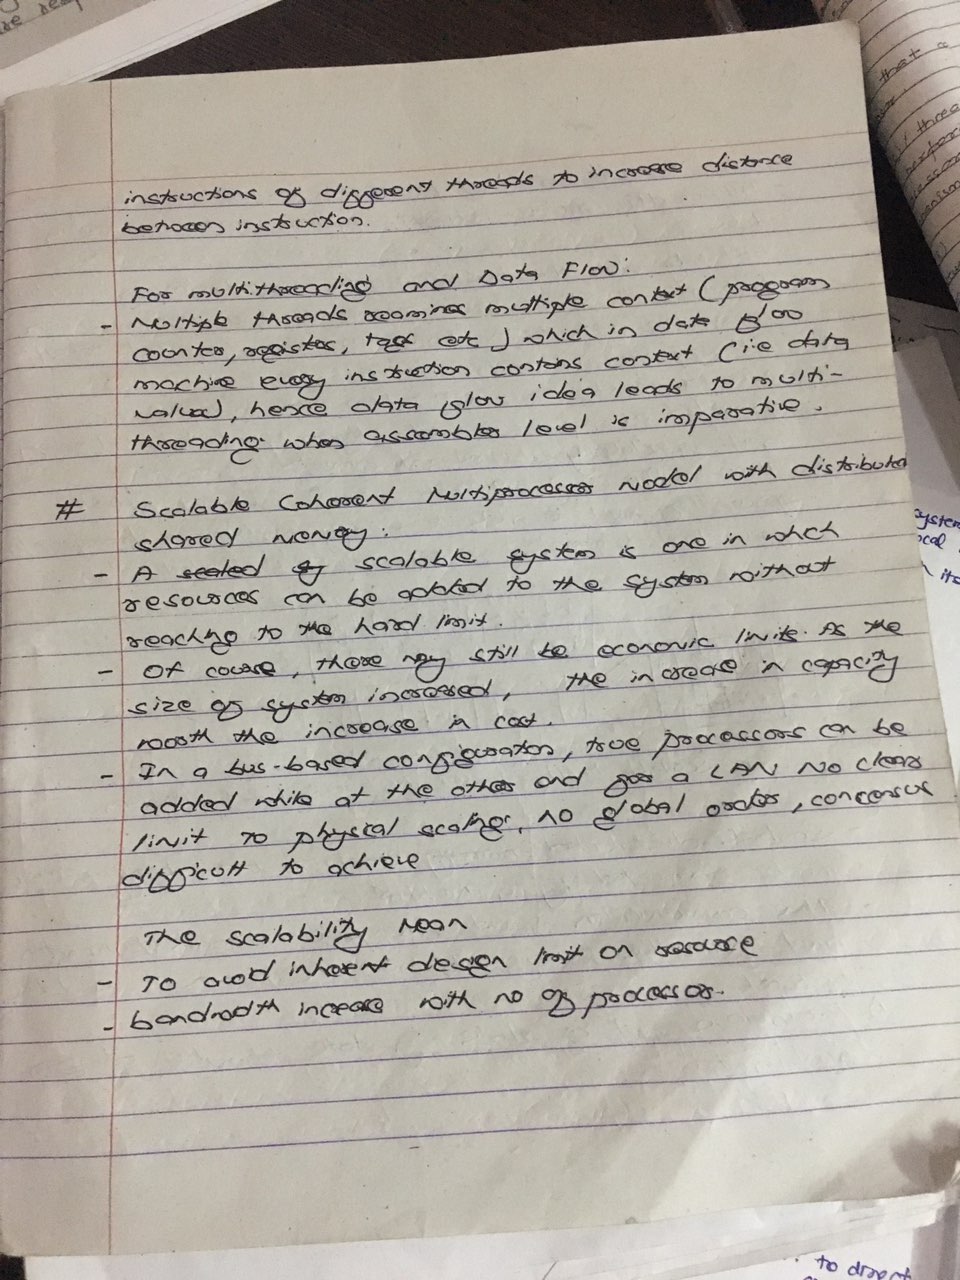 instructions of different threads to increase distance
between instruction.
For multithreading and Data Flow:
- Multiple threads requires multiple context (program
counter, register, tags etc) which in data flow
machine every instruction contains context (i.e data
value), hence data flow idea leads to multi-
threading when assembler level is imparative.
# Scalable Coherent Multiprocessor model with distributed
shared memory:
- A scalable system is one in which
resources can be added to the system without
reaching to the hard limit.
- Of course, there may still be economic limits. As the
size of system increased, the increase in capacity
the increase in cost.
- In a bus-based configuration, true processors can be
added while at the other end for a LAN No clear
limit to physical scaling, no global order, concensus
difficult to achieve
The scalability mean
- To avoid inherent design limit on resource
- bandwidth increase with no of processor.
that a
three
ystem
ocal
its
to direct